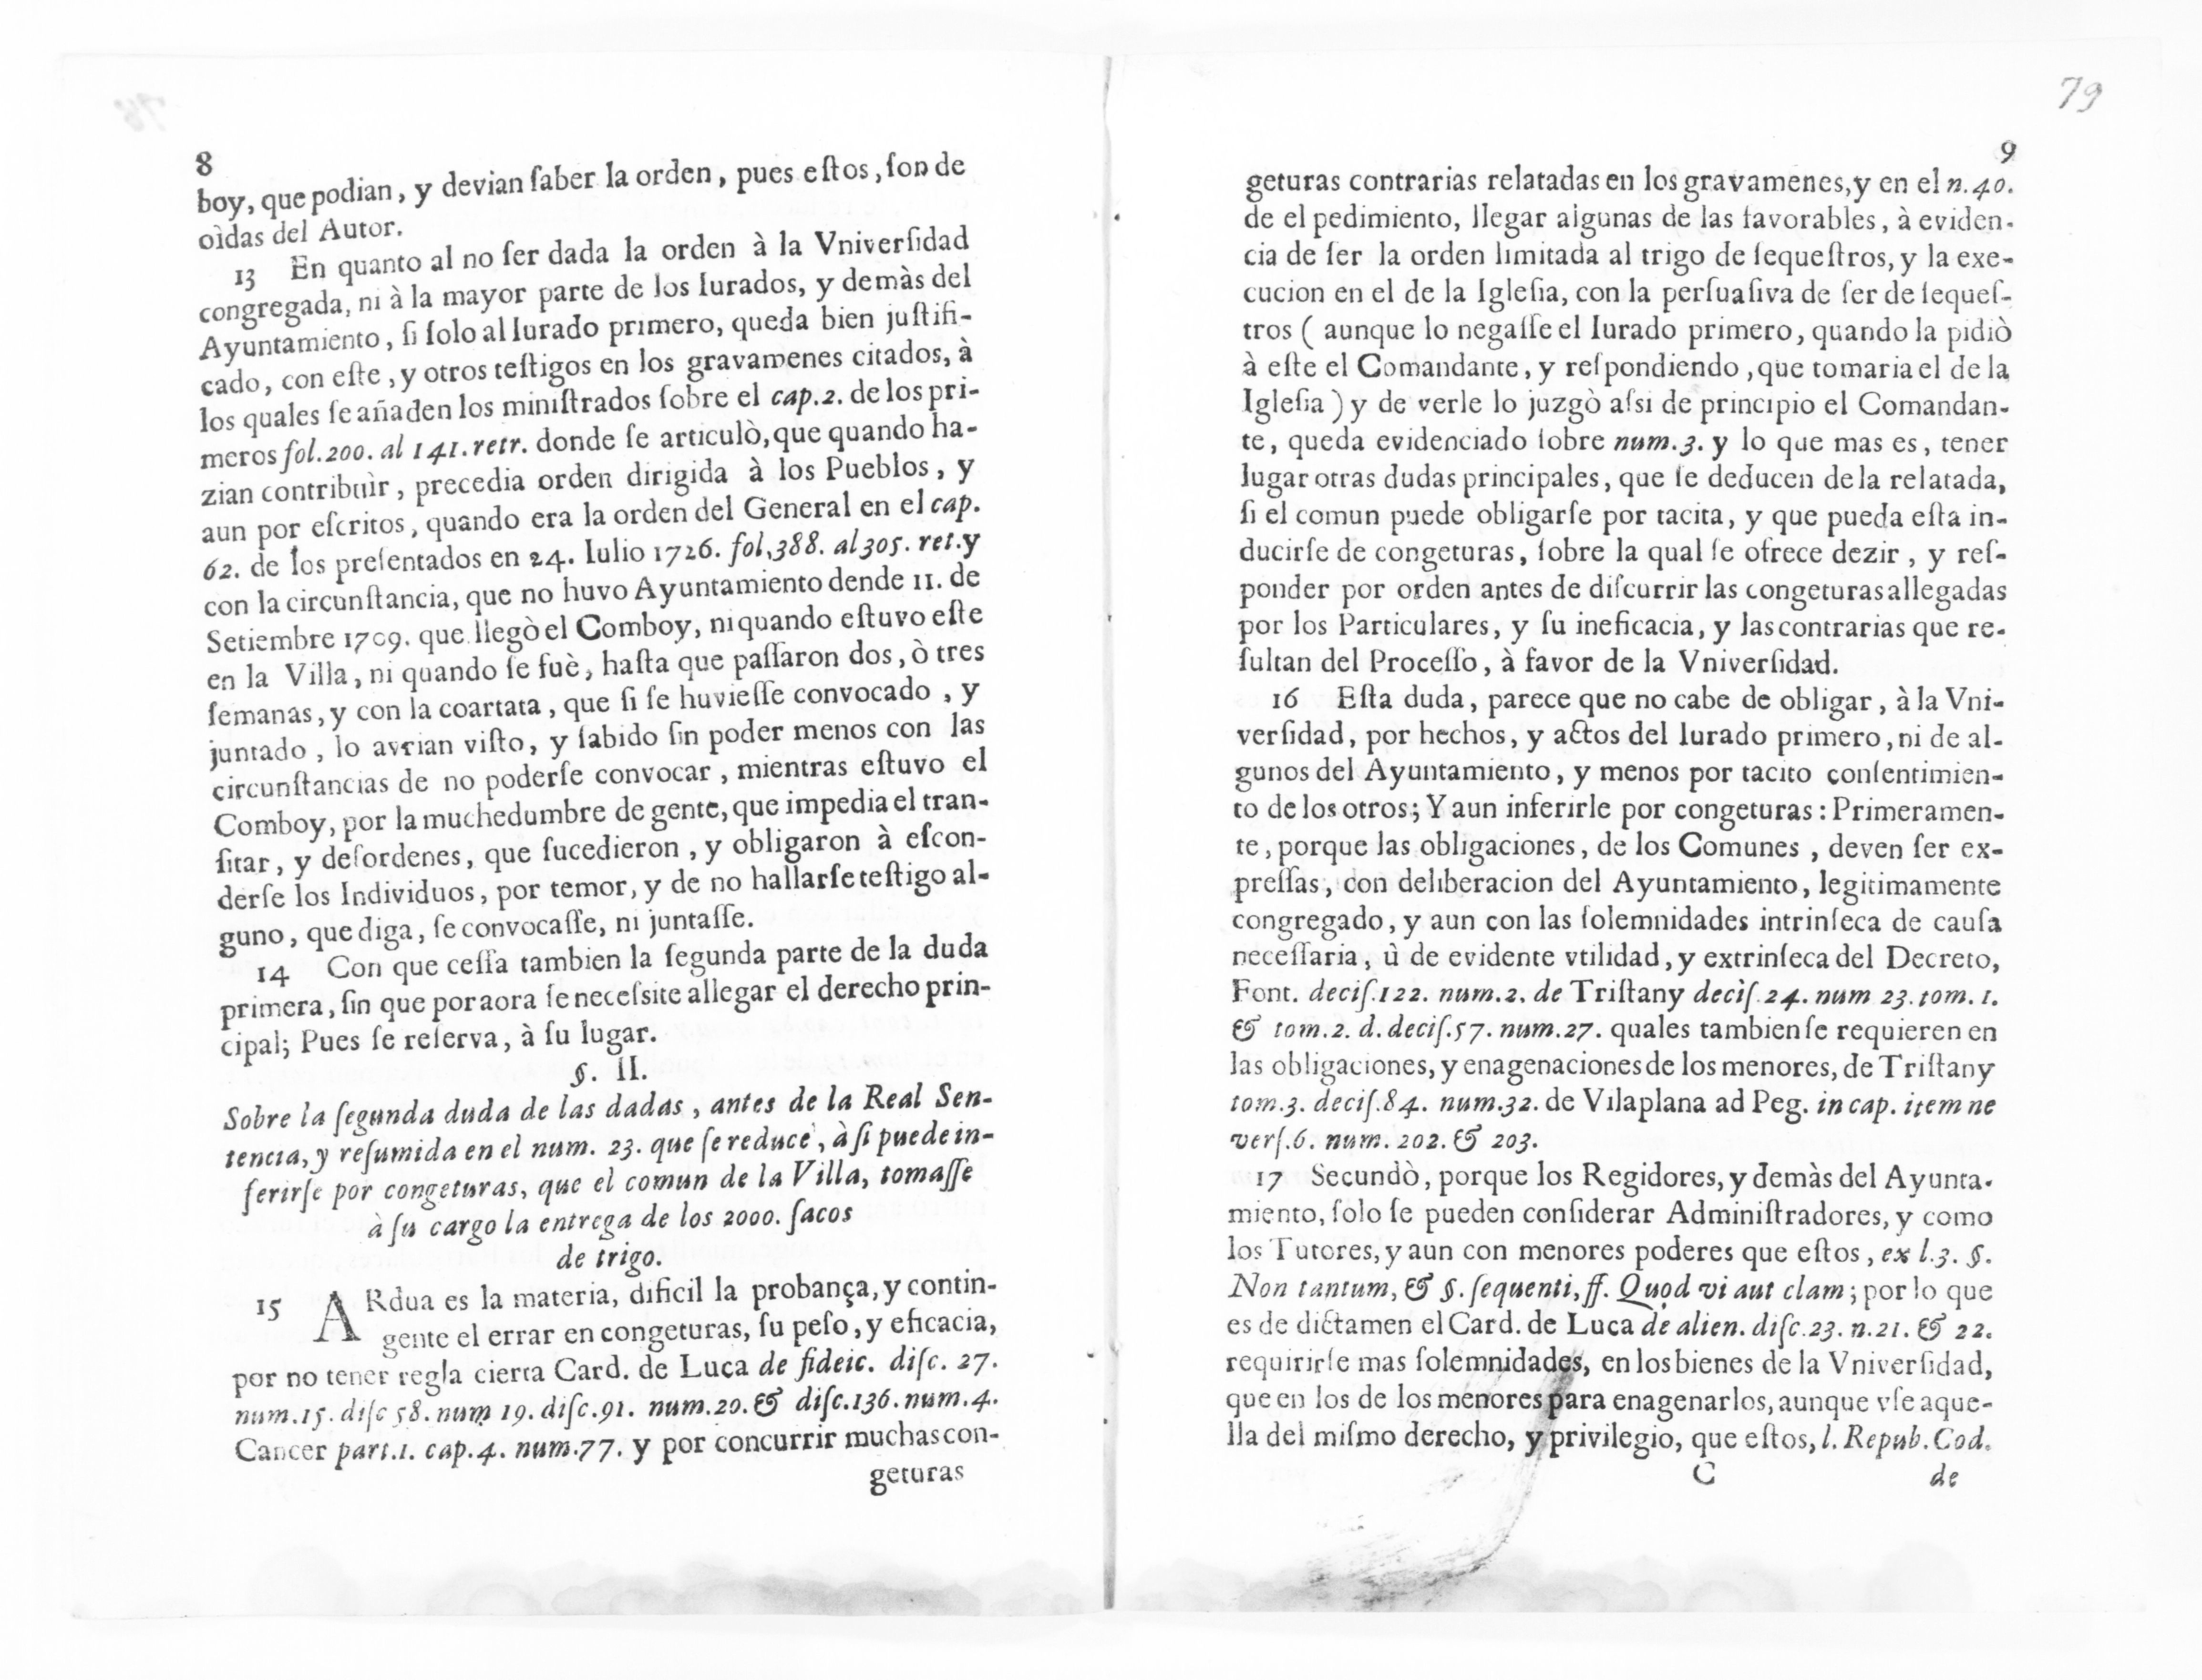 8
boy, que podian, y devian ſaber la orden, pues eſtos, ſon de
oìdas del Autor.
13 En quanto al no ſer dada la orden à la Vniverſidad
congregada, ni à la mayor parte de los Iurados, y demàs del
Ayuntamiento, ſi ſolo al Iurado primero, queda bien juſtifi-
cado, con eſte, y otros teſtigos en los gravamenes citados, à
los quales ſe añaden los miniſtrados ſobre el cap.2. de los pri-
meros fol.200. al 141.retr. donde ſe articulò, que quando ha-
zian contribuìr, precedia orden dirigida à los Pueblos, y
aun por eſcritos, quando era la orden del General en el cap.
62. de los preſentados en 24. Iulio 1726. fol,388. al 305. ret.y
con la circunſtancia, que no huvo Ayuntamiento dende 11. de
Setiembre 1709. que llegò el Comboy, ni quando eſtuvo eſte
en la Villa, ni quando ſe fuè, haſta que paſſaron dos, ò tres
ſemanas, y con la coartata, que ſi ſe huvieſſe convocado, y
juntado, lo avrian viſto, y ſabido ſin poder menos con las
circunſtancias de no poderſe convocar, mientras eſtuvo el
Comboy, por la muchedumbre de gente, que impedia el tran-
ſitar, y deſordenes, que ſucedieron, y obligaron à eſcon-
derſe los Individuos, por temor, y de no hallarſe teſtigo al-
guno, que diga, ſe convocaſſe, ni juntaſſe.
14 Con que ceſſa tambien la ſegunda parte de la duda
primera, ſin que por aora ſe neceſsite allegar el derecho prin-
cipal; Pues ſe reſerva, à ſu lugar.
§. II.
Sobre la ſegunda duda de las dadas, antes de la Real Sen-
tencia, y reſumida en el num. 23. que ſe reduce, à ſi puede in-
ferirſe por congeturas, que el comun de la Villa, tomaſſe
à ſu cargo la entrega de los 2000. ſacos
de trigo.
15 ARdua es la materia, dificil la probança, y contin-
gente el errar en congeturas, ſu peſo, y eficacia,
por no tener regla cierta Card. de Luca de fideic. diſc. 27.
num.15. diſc 58. num 19. diſc.91. num.20. & diſc.136. num.4.
Cancer part.1. cap.4. num.77. y por concurrir muchas con-
geturas
79
9
geturas contrarias relatadas en los gravamenes, y en el n.40.
de el pedimiento, llegar algunas de las favorables, à eviden-
cia de ſer la orden limitada al trigo de ſequeſtros, y la exe-
cucion en el de la Igleſia, con la perſuaſiva de ſer de ſequeſ-
tros ( aunque lo negaſſe el Iurado primero, quando la pidiò
à eſte el Comandante, y reſpondiendo, que tomaria el de la
Igleſia ) y de verle lo juzgò aſsi de principio el Comandan-
te, queda evidenciado ſobre num.3. y lo que mas es, tener
lugar otras dudas principales, que ſe deducen de la relatada,
ſi el comun puede obligarſe por tacita, y que pueda eſta in-
ducirſe de congeturas, ſobre la qual ſe ofrece dezir, y reſ-
ponder por orden antes de diſcurrir las congeturas allegadas
por los Particulares, y ſu ineficacia, y las contrarias que re-
ſultan del Proceſſo, à favor de la Vniverſidad.
16 Eſta duda, parece que no cabe de obligar, à la Vni-
verſidad, por hechos, y actos del Iurado primero, ni de al-
gunos del Ayuntamiento, y menos por tacito conſentimien-
to de los otros; Y aun inferirle por congeturas: Primeramen-
te, porque las obligaciones, de los Comunes, deven ſer ex-
preſſas, con deliberacion del Ayuntamiento, legitimamente
congregado, y aun con las ſolemnidades intrinſeca de cauſa
neceſſaria, ù de evidente vtilidad, y extrinſeca del Decreto,
Font. deciſ.122. num.2. de Triſtany decìſ.24. num 23. tom. 1.
& tom.2. d. deciſ.57. num.27. quales tambien ſe requieren en
las obligaciones, y enagenaciones de los menores, de Triſtany
tom.3. deciſ.84. num.32. de Vilaplana ad Peg. in cap. item ne
verſ.6. num. 202. & 203.
17 Secundò, porque los Regidores, y demàs del Ayunta-
miento, ſolo ſe pueden conſiderar Adminiſtradores, y como
los Tutores, y aun con menores poderes que eſtos, ex l.3. §.
Non tantum, & §. ſequenti, ff. Quod vi aut clam; por lo que
es de dictamen el Card. de Luca de alien. diſc.23. n.21. & 22.
requirirſe mas ſolemnidades, en los bienes de la Vniverſidad,
que en los de los menores para enagenarlos, aunque vſe aque-
lla del miſmo derecho, y privilegio, que eſtos, l. Repub. Cod.
C de